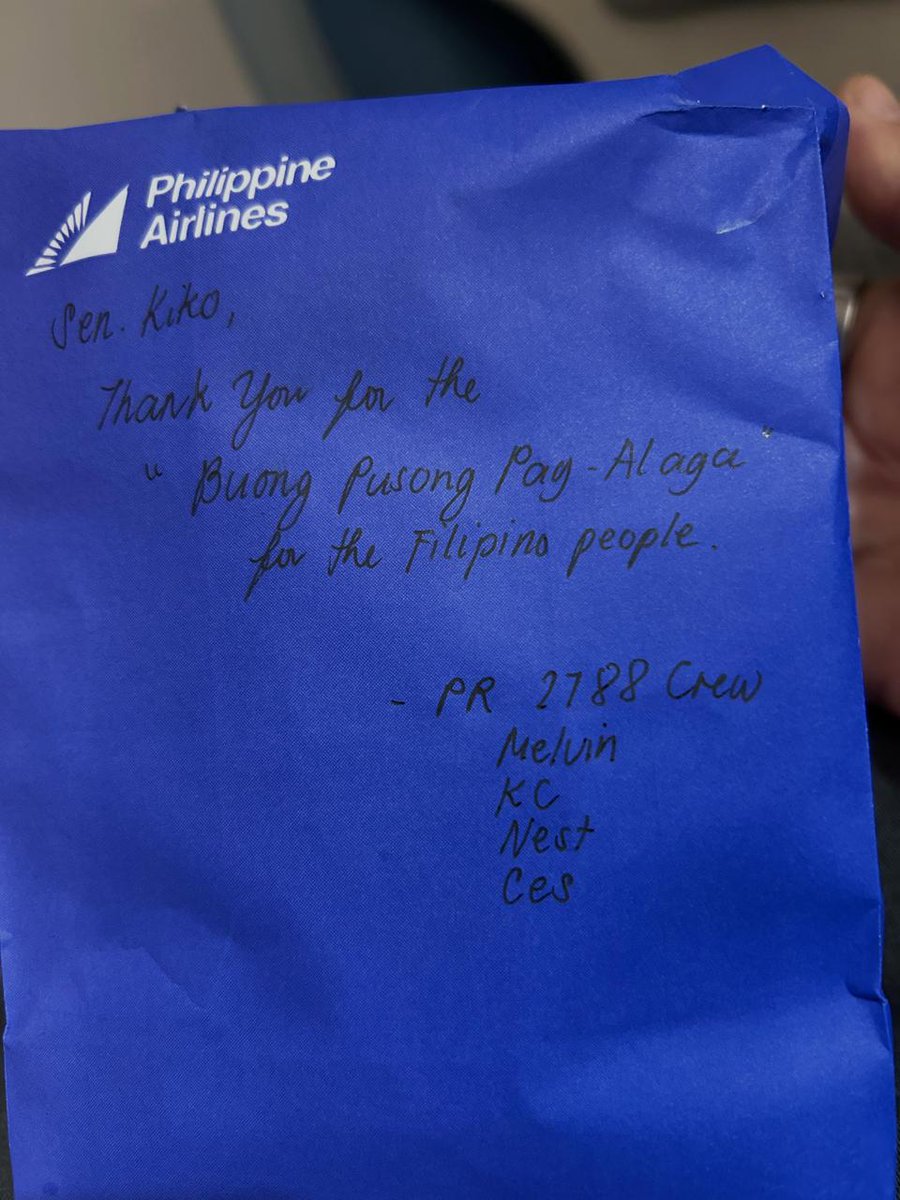 Philippine
Airlines
Sen. Kiko,
Thank You for the
" Buong Pusong Pag-Alaga "
for the Filipino people.
- PR 2788 Crew
Melvin
KC
Nest
Ces